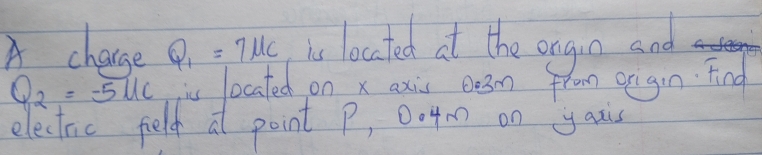 A charge Q₁ = 7 μc, is located at the origin and
Q₂ = -5 μc is located on x axis 0.3m from origin. Find
electric field at point P, 0.4m on y axis